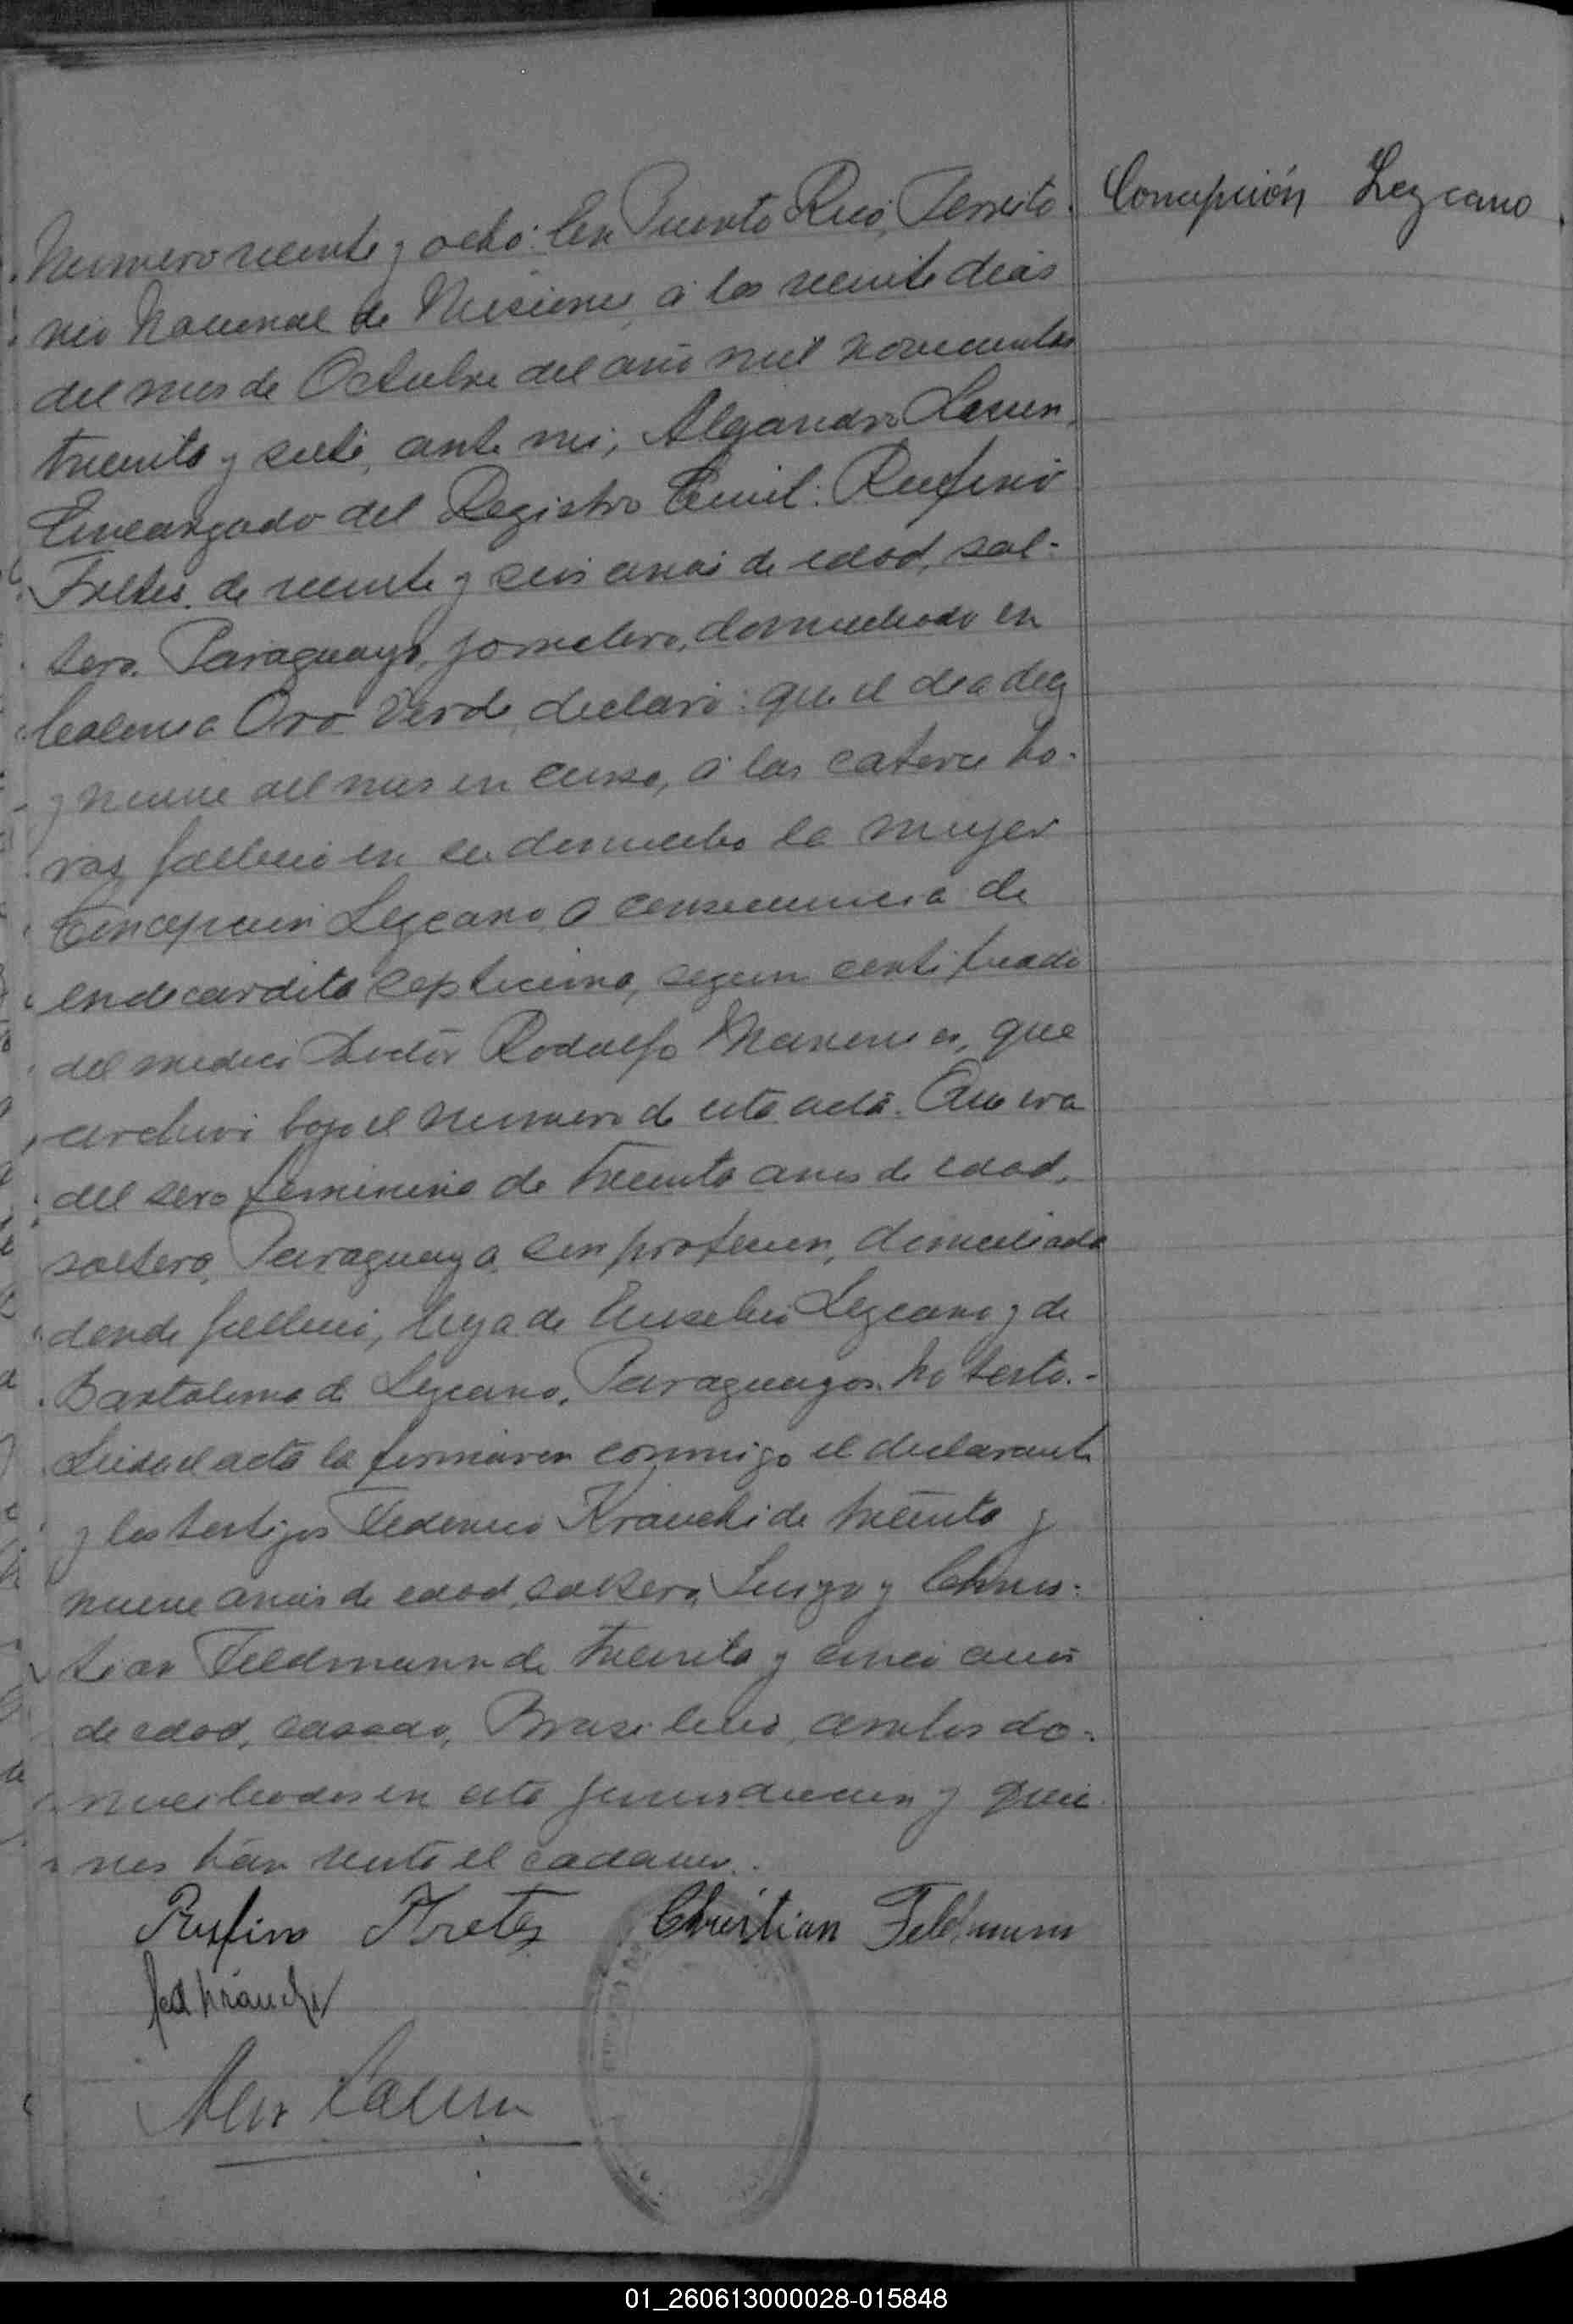 Concepción Lezcano
Numero veinte y ocho: En Puerto Rico, Territo-
rio Nacional de Misiones, á los veinte dias
del mes de Octubre del año mil novecientos
treinta y siete, ante mi, Alejandro
Encargado del Registro Civil: Rufino
Fretes, de veinte y seis años de edad, sol-
tero, Paraguayo, jornalero, domiciliado en
Colonia Oro Verde, declaró: que el dia diez
y nueve del mes en curso, á las catorce ho-
ras falleció en su domicilio la mujer
Concepcion Lezcano, a consecuencia de
endocardita septicima, segun certificado
del medico Doctor Rodolfo que
archivo bajo el numero de esta acta. Que era
del sexo femenino de treinta años de edad,
soltera, Paraguaya, sin profesion, domiciliada
donde falleció, hija de Eusebio Lezcano y de
Bartolina de Lezcano, Paraguayos. No testó.-
Leida el acta la firmaron conmigo el declarante
y los testigos Federico Kräuchi de treinta y
nueve años de edad, soltero, Suizo y Chris-
tian Feldmann de treinta y cinco años
de edad, casado, Brasilero, ambos do-
miciliados en esta jurisdiccion y quie-
nes hán visto el cadaver.
Rufino Fretes Christian Feldmann
Fed Kräuchi
01_260613000028-015848